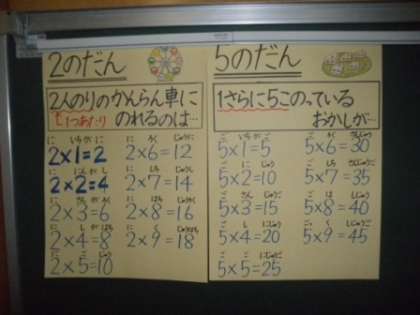 2のだん
2人のりのかんらん車に
1つあたり
のれるのは…
に いち が に
2×1=2
に にん が し
2×2=4
に さん が ろく
2×3=6
に し が はち
2×4=8
に ご じゅう
2×5=10
に ろく じゅうに
2×6=12
に しち じゅうし
2×7=14
に は じゅうろく
2×8=16
に く じゅうはち
2×9=18
5のだん
1さらに5このっている
おかしが…
ご いち が ご
5×1=5
ご に じゅう
5×2=10
ご さん じゅうご
5×3=15
ご し にじゅう
5×4=20
ご ご にじゅうご
5×5=25
ご ろく さんじゅう
5×6=30
ご しち さんじゅうご
5×7=35
ご は しじゅう
5×8=40
ごっ く しじゅうご
5×9=45